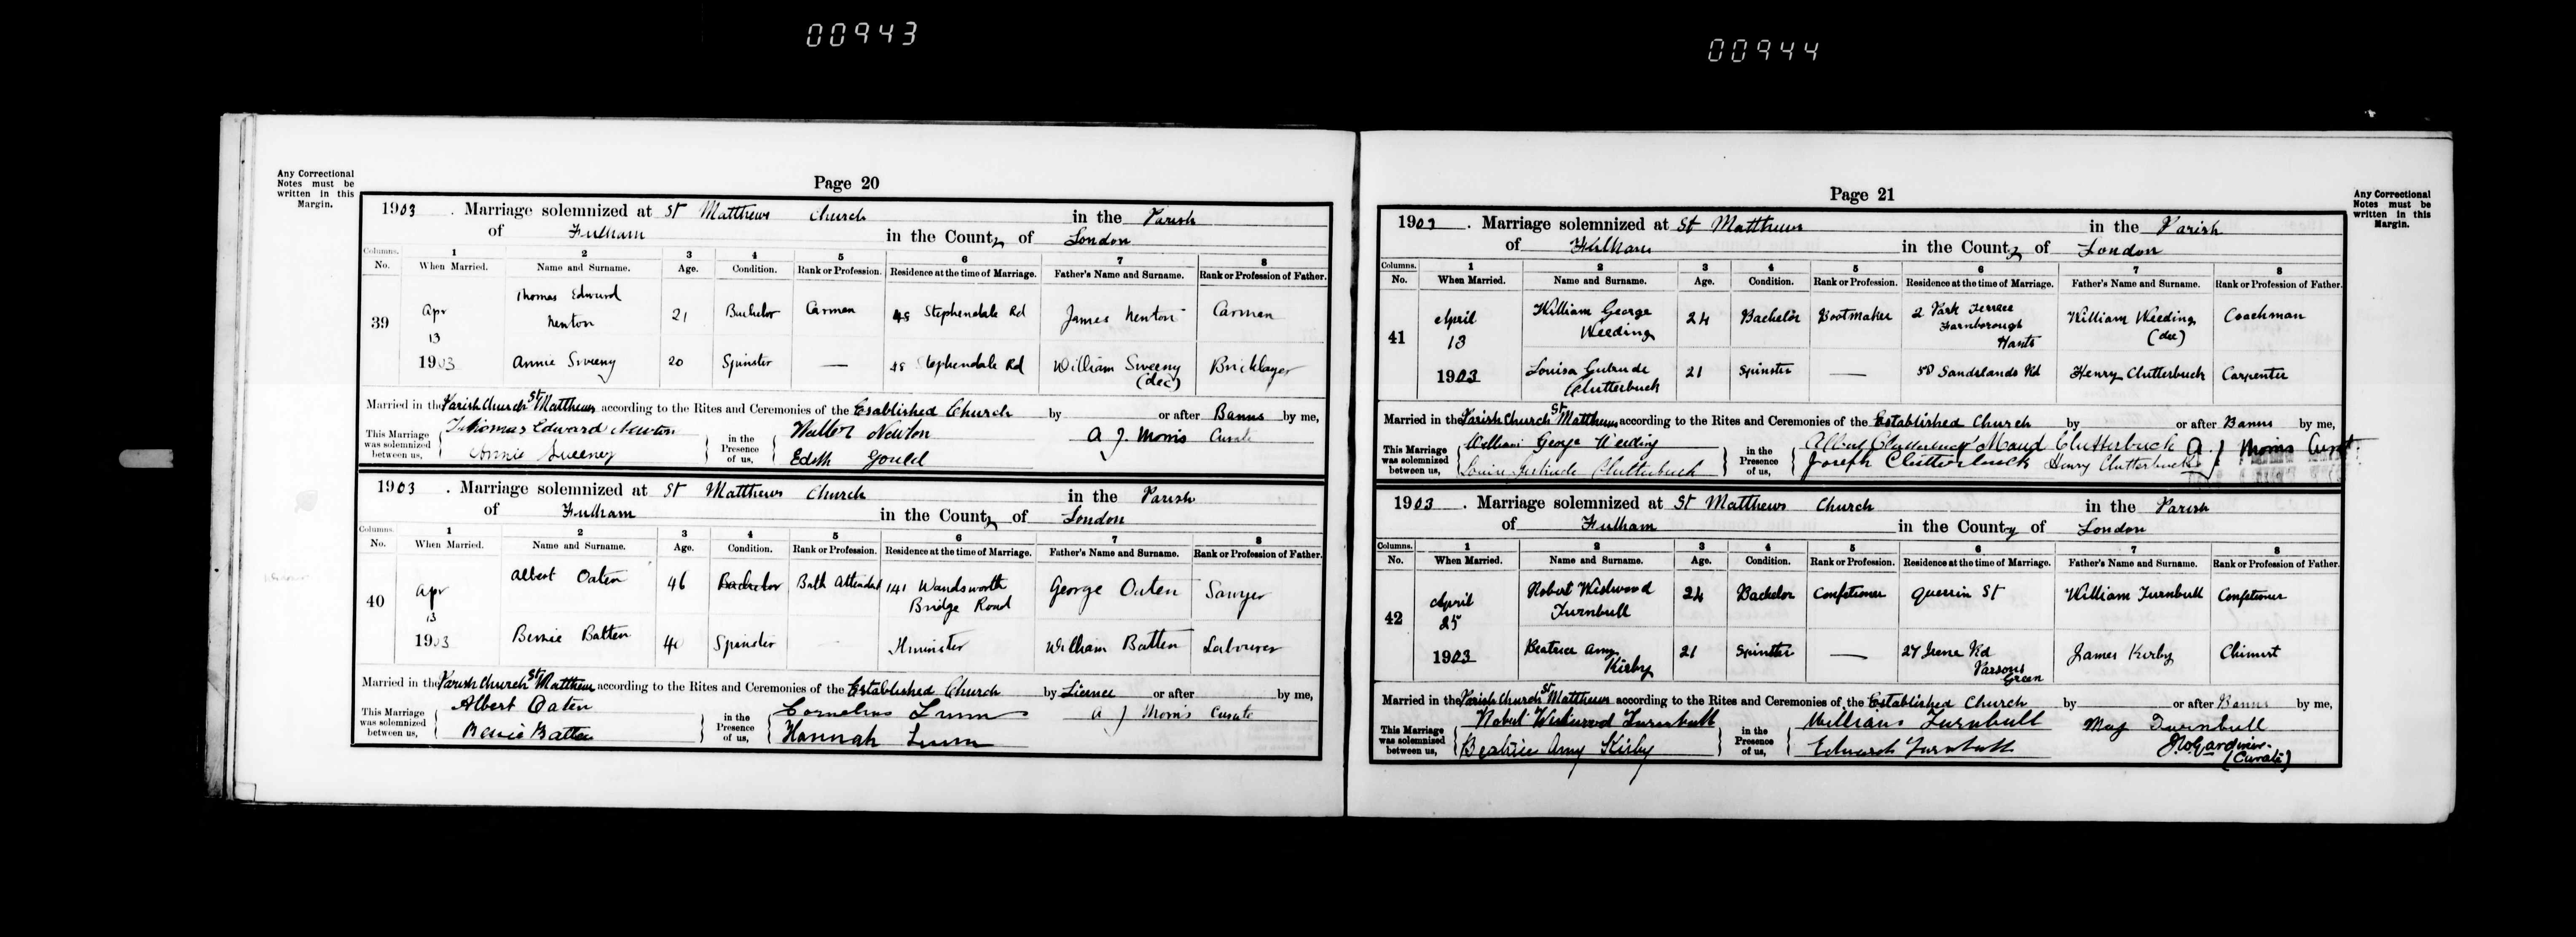 00943
00944
Any Correctional
Notes must be
written in this
Margin.
Page 20
1903. Marriage solemnized at St Matthews Church in the Parish
of Fulham in the County of London
Columns. 1 2 3 4 5 6 7 8
No. When Married. Name and Surname. Age. Condition. Rank or Profession. Residence at the time of Marriage. Father's Name and Surname. Rank or Profession of Father.
39 Apr 13 1903 Thomas Edward Newton 21 Bachelor Carman 48 Stephendale Rd James Newton Carman
Annie Sweeny 20 Spinster — 48 Stephendale Rd William Sweeny (dec) Bricklayer
Married in the Parish Church St Matthews according to the Rites and Ceremonies of the Established Church by or after Banns by me,
This Marriage was solemnized between us, Thomas Edward Newton in the Presence of us, Walter Newton A J. Morris Curate
Annie Sweeney Edith Gould
1903. Marriage solemnized at St Matthews Church in the Parish
of Fulham in the County of London
Columns. 1 2 3 4 5 6 7 8
No. When Married. Name and Surname. Age. Condition. Rank or Profession. Residence at the time of Marriage. Father's Name and Surname. Rank or Profession of Father.
40 Apr 13 1903 Albert Oaten 46 Bachelor Bath Attendat 141 Wandsworth Bridge Road George Oaten Sawyer
Bessie Batten 40 Spinster Ilminster William Batten Labourer
Married in the Parish Church St Matthew according to the Rites and Ceremonies of the Established Church by Licence or after by me,
This Marriage was solemnized between us, Albert Oaten in the Presence of us, Cornelius Lumm A J Morris Curate
Bessie Batten Hannah Lumm
Page 21
Any Correctional
Notes must be
written in this
Margin.
1903. Marriage solemnized at St Matthews in the Parish
of Fulham in the County of London
Columns. 1 2 3 4 5 6 7 8
No. When Married. Name and Surname. Age. Condition. Rank or Profession. Residence at the time of Marriage. Father's Name and Surname. Rank or Profession of Father.
41 April 13 1903 William George Weeding 24 Bachelor Bootmaker 2 Park Terrace Farnborough Hants William Weeding (dec) Coachman
Louisa Gutrude Clutterbuck 21 Spinster — 58 Sandslands Rd Henry Clutterbuck Carpenter
Married in the Parish Church St Matthews according to the Rites and Ceremonies of the Established Church by or after Banns by me,
This Marriage was solemnized between us, William George Weeding in the Presence of us, Albert Clutterbuck Maud Clutterbuck A J Morris Curat
Louisa Gertrude Clutterbuck Joseph Clutterbuck Henry Clutterbuck
1903. Marriage solemnized at St Matthews Church in the Parish
of Fulham in the County of London
Columns. 1 2 3 4 5 6 7 8
No. When Married. Name and Surname. Age. Condition. Rank or Profession. Residence at the time of Marriage. Father's Name and Surname. Rank or Profession of Father.
42 April 25 1903 Robert Westwood Turnbull 24 Bachelor Confetioner Querrin St William Turnbull Confetioner
Beatrice Amy Kirby 21 Spinster — 27 Irene Rd Parsons Green James Kirby Chimist
Married in the Parish Church St Matthews according to the Rites and Ceremonies of the Established Church by or after Banns by me,
This Marriage was solemnized between us, Robert Westwood Turnbull in the Presence of us, William Turnbull May Turnbull
Beatrice Amy Kirby Edward Turnbull Gardiner (Curate)